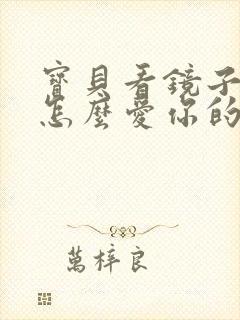 寶貝看鏡子
怎麼愛你的
萬梓良